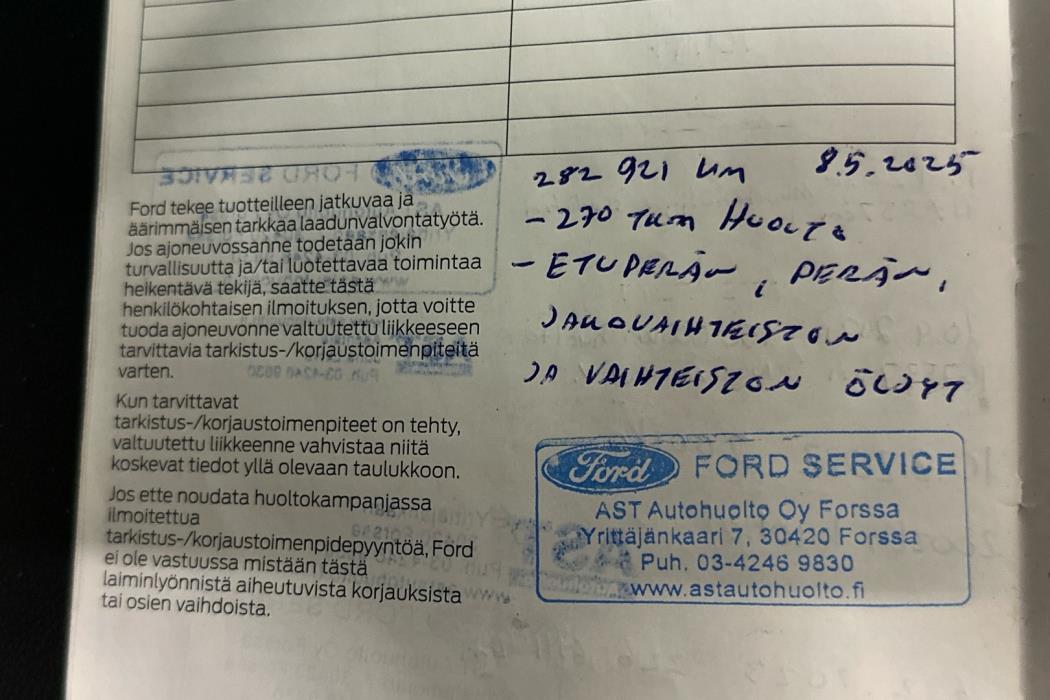 Ford tekee tuotteilleen jatkuvaa ja
äärimmäisen tarkkaa laadunvalvontatyötä.
Jos ajoneuvossanne todetaan jokin
turvallisuutta ja/tai luotettavaa toimintaa
heikentävä tekijä, saatte tästä
henkilökohtaisen ilmoituksen, jotta voitte
tuoda ajoneuvonne valtuutettu liikkeeseen
tarvittavia tarkistus-/korjaustoimenpiteitä
varten.
Kun tarvittavat
tarkistus-/korjaustoimenpiteet on tehty,
valtuutettu liikkeenne vahvistaa niitä
koskevat tiedot yllä olevaan taulukkoon.
Jos ette noudata huoltokampanjassa
ilmoitettua
tarkistus-/korjaustoimenpidepyyntöä, Ford
ei ole vastuussa mistään tästä
laiminlyönnistä aiheutuvista korjauksista
tai osien vaihdoista.
282 921 km 8.5.2025
- 270 tkm Huolto
- ETUPERÄN, PERÄN,
JAKOVAIHTEISTON
JA VAIHTEISTON ÖLJYT
Ford FORD SERVICE
AST Autohuolto Oy Forssa
Yrittäjänkaari 7, 30420 Forssa
Puh. 03-4246 9830
www.astautohuolto.fi